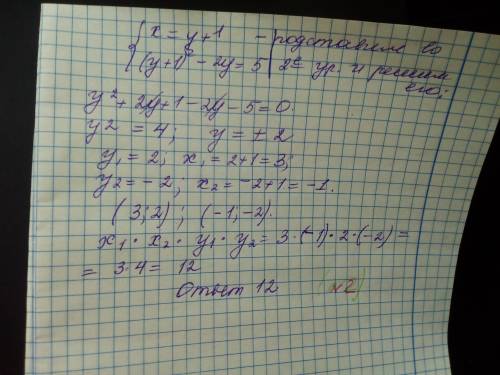 x = y+1 - подставим во
(y+1)² - 2y = 5 2е ур. и решим
его;
y² + 2y + 1 - 2y - 5 = 0.
y2 = 4; y = ± 2
y₁ = 2; x₁ = 2+1 = 3;
y2 = -2; x₂ = -2+1 = -1.
(3; 2); (-1; -2).
x₁ · x₂ · y₁ · y₂ = 3·(-1)·2·(-2) =
= 3·4 = 12
Ответ 12 (№2)